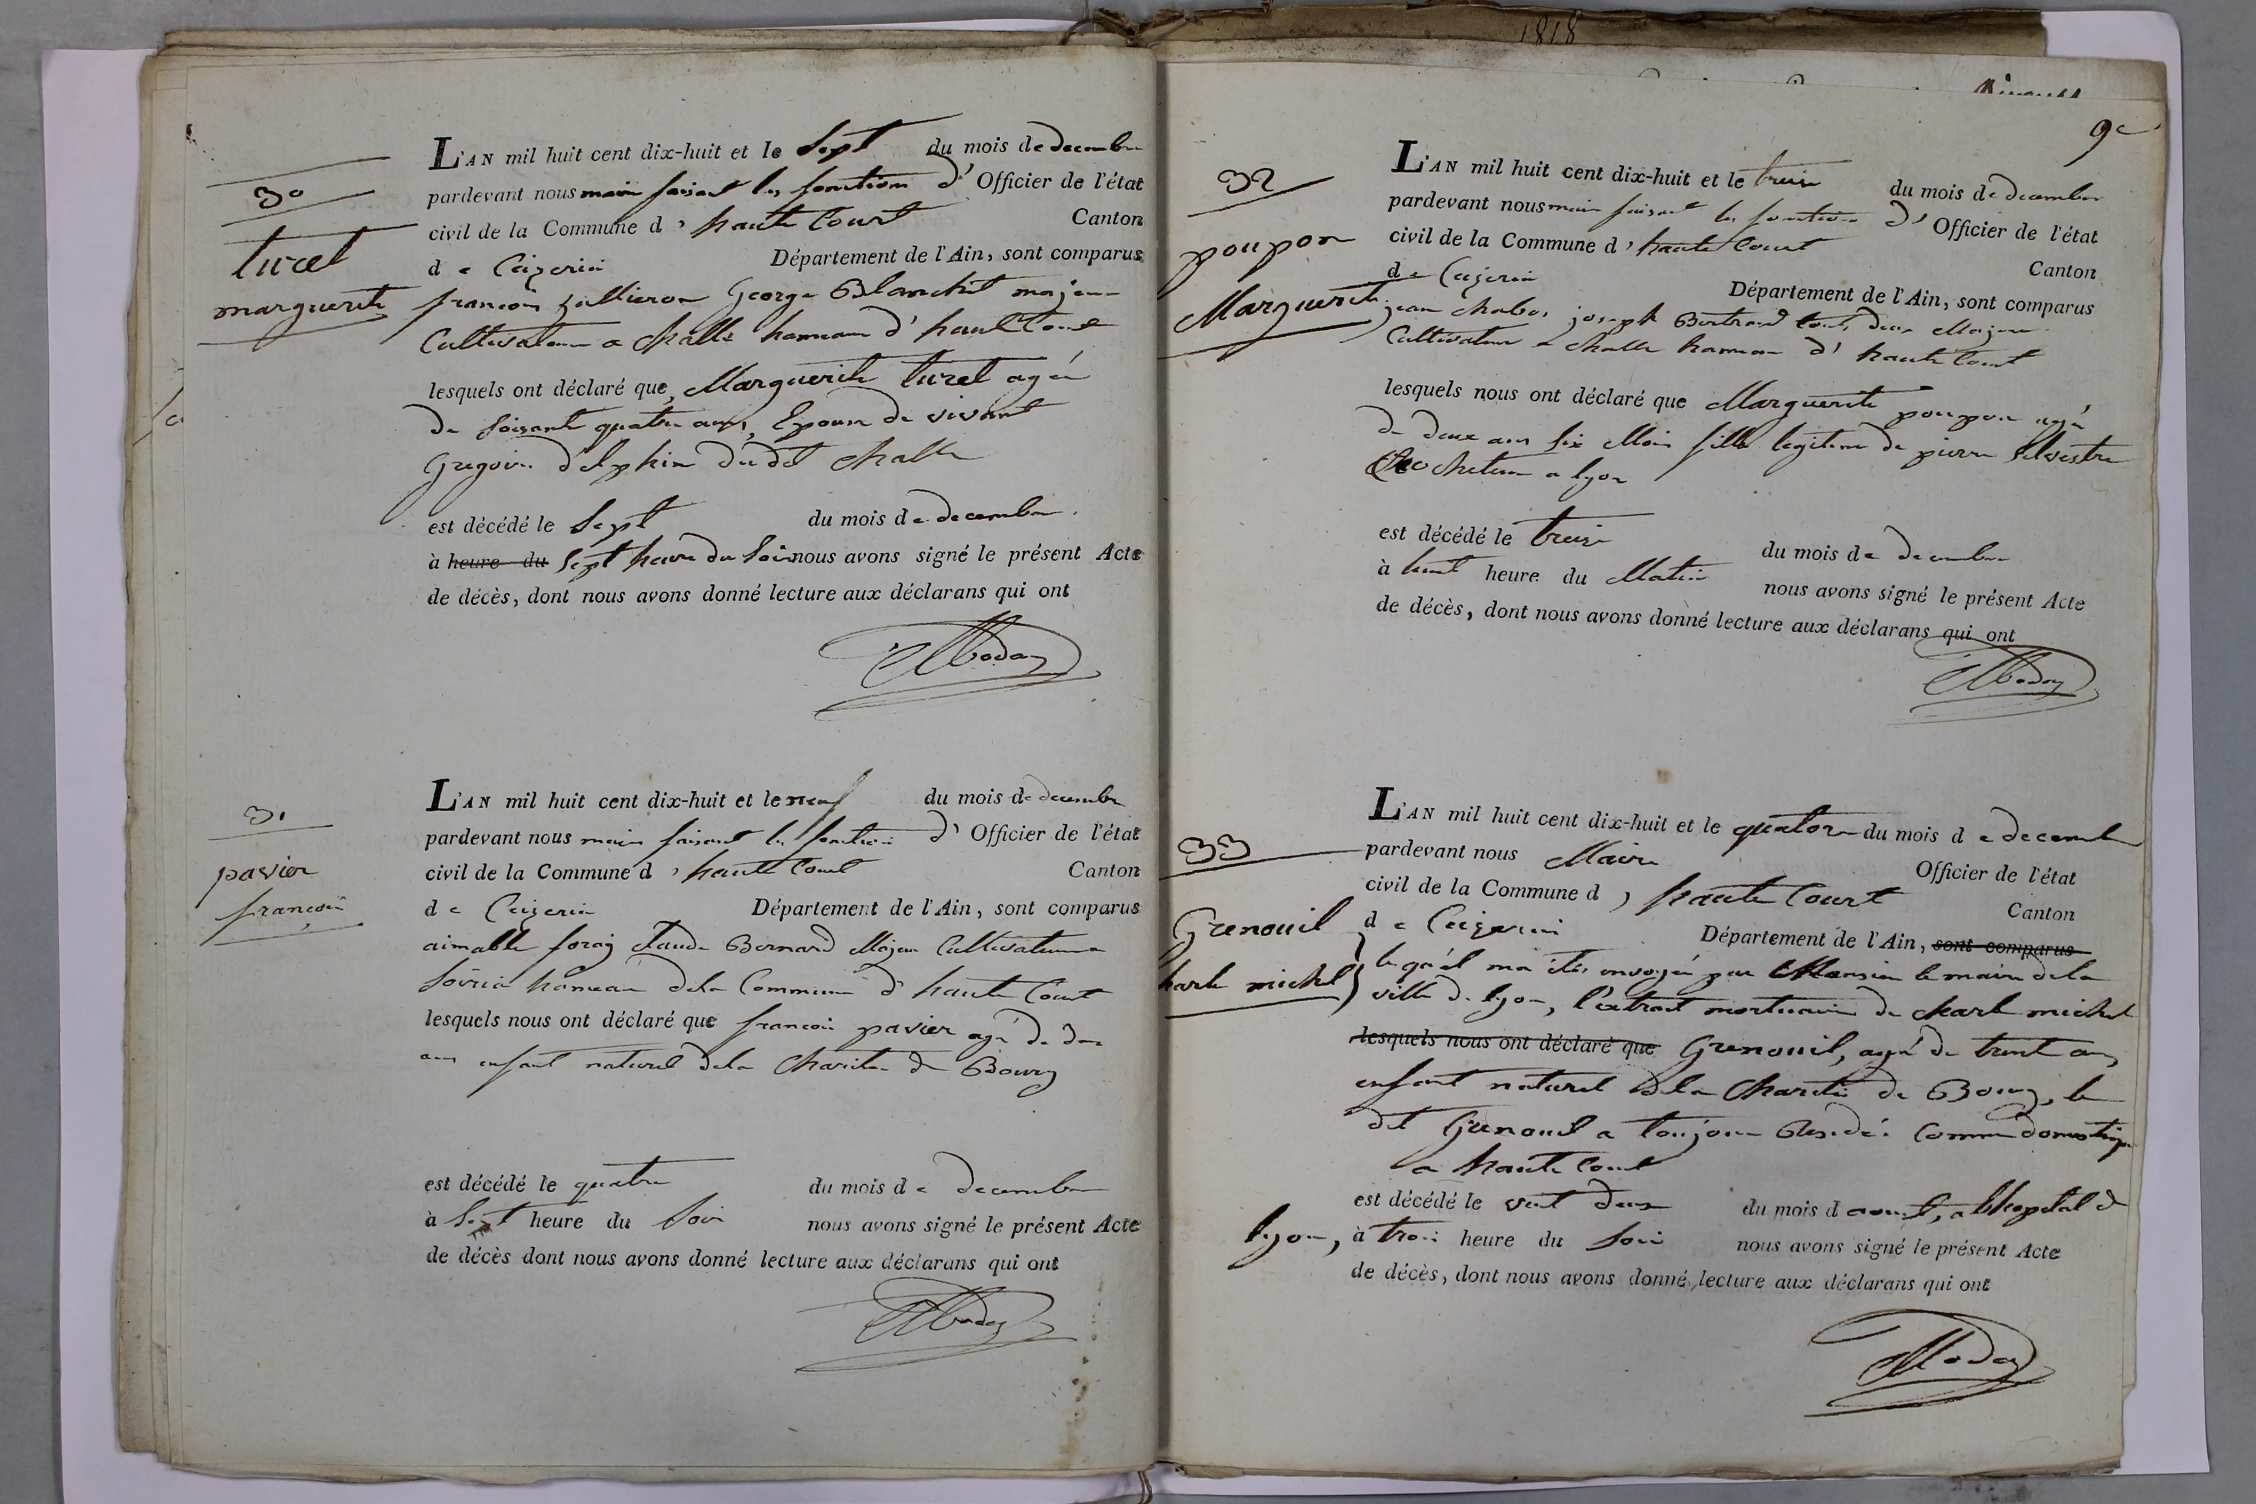 1818
30
turel
marguerite
L'AN mil huit cent dix-huit et le Sept du mois de decembre
pardevant nous maire faisant les fonction d' Officier de l'état
civil de la Commune d , haute Court Canton
de Ceizeria Département de l'Ain, sont comparus
francois George Blanchet majeur
Cultivateur a challe hameau d' haute Court
lesquels ont déclaré que Marguerite turel agée
de soisante quatre ans, Epouse de vivant
Gregoire delphin dudit challe
est décédé le Sept du mois de decembre.
à heure du Sept heure du Soir nous avons signé le présent Acte
de décès, dont nous avons donné lecture aux déclarans qui ont
31
pavier
francois
L'AN mil huit cent dix-huit et le neuf du mois de decembre
pardevant nous maire faisant les fonction d' Officier de l'état
civil de la Commune d , haute Court Canton
de Ceizeria Département de l'Ain, sont comparus
aimable foray Claude Bernard Majeur Cultivateur a
Soiria hameau dela Commune d' haute Court
lesquels nous ont déclaré que francois pavier agé de deux
ans enfant naturel dela Charitee de Bourg
est décédé le quatre du mois de decembre
à Sept heure du Soir nous avons signé le présent Acte
de décès dont nous avons donné lecture aux déclarans qui ont
9e
32
poupon
Marguerite
L'AN mil huit cent dix-huit et le treize du mois de decembre
pardevant nous maire faisant les fonction d' Officier de l'état
civil de la Commune d , haute Court Canton
de Ceizeria Département de l'Ain, sont comparus
jean chabos joseph Bertrand tout deux Majeur
Cultivateur a challe hameau d' haute Court
lesquels nous ont déclaré que Marguerite poupon agée
de deux ans six Mois fille legitime de pierre Silvestre
Crocheteur a lyon
est décédé le treize du mois de decembre
à huit heure du Matin nous avons signé le présent Acte
de décès, dont nous avons donné lecture aux déclarans qui ont
33
Grenouil
charle michel
L'AN mil huit cent dix-huit et le quatorze du mois de decembre
pardevant nous Maire Officier de l'état
civil de la Commune d , haute Court Canton
de Ceizeria Département de l'Ain, sont comparus
ma étée envoyée par Monsieu le maire dela
ville de lyon, l'extrait mortuaire de charle michel
lesquels nous ont déclaré que Grenouil, agé de trent ans,
enfant naturel dela Charitée de Bourg, le
dit Grenouil a toujour Residée Comme domestique
a haute Court
est décédé le vent deux du mois d aoust, a lhopital de
lyon, à trois heure du Soir nous avons signé le présent Acte
de décès, dont nous avons donné lecture aux déclarans qui ont